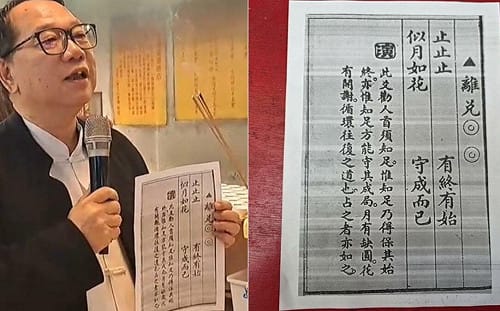 離兌◎◎
止止止 有終有始
似月如花 守成而已
▲離兌◎◎
止止止 有終有始
似月如花 守成而已
演 此爻勸人首須知足。惟知足乃得保其始
終。亦惟知足方能守其成局。月有缺圓。花
有開謝。循環往復之道也。占之者亦如之。